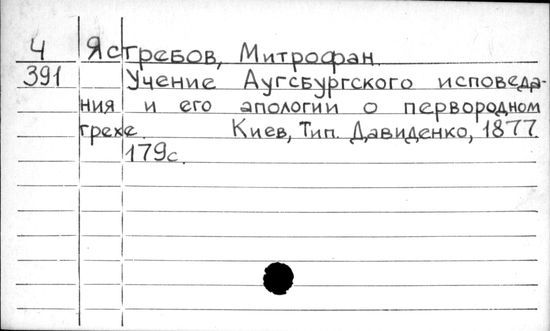 Ч Ястребов, Митрофан.
391 Учение Аугсбургского исповеда-
ния и его апологии о первородном
грехе. Киев, Тип. Давиденко, 1877.
179с.